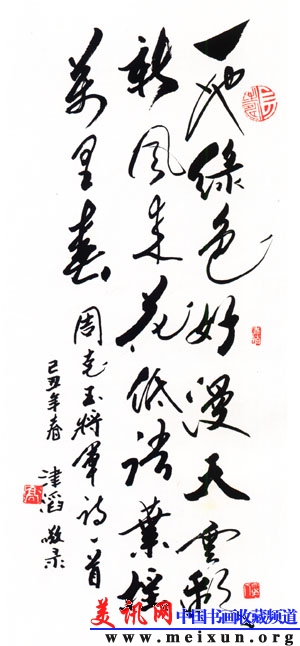 一地綠色好漫天雲彩
新風来花低语葉摇
萬里春
周克玉將軍诗一首
己丑年春
津滔敬录
美讯网 中国书画收藏频道
www.meixun.org